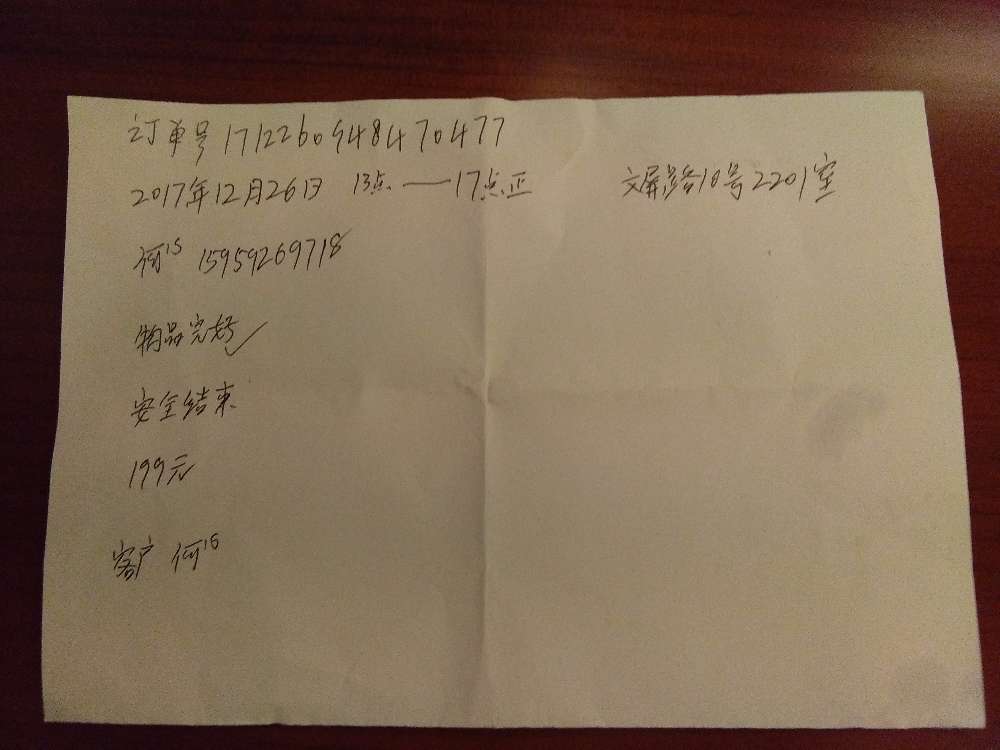 订单号 17122609484 70477
2017年12月26日 13点——17点正 文屏路10号2201室
何15 15959269718
物品完好✓
安全结束
199元
客户 何15